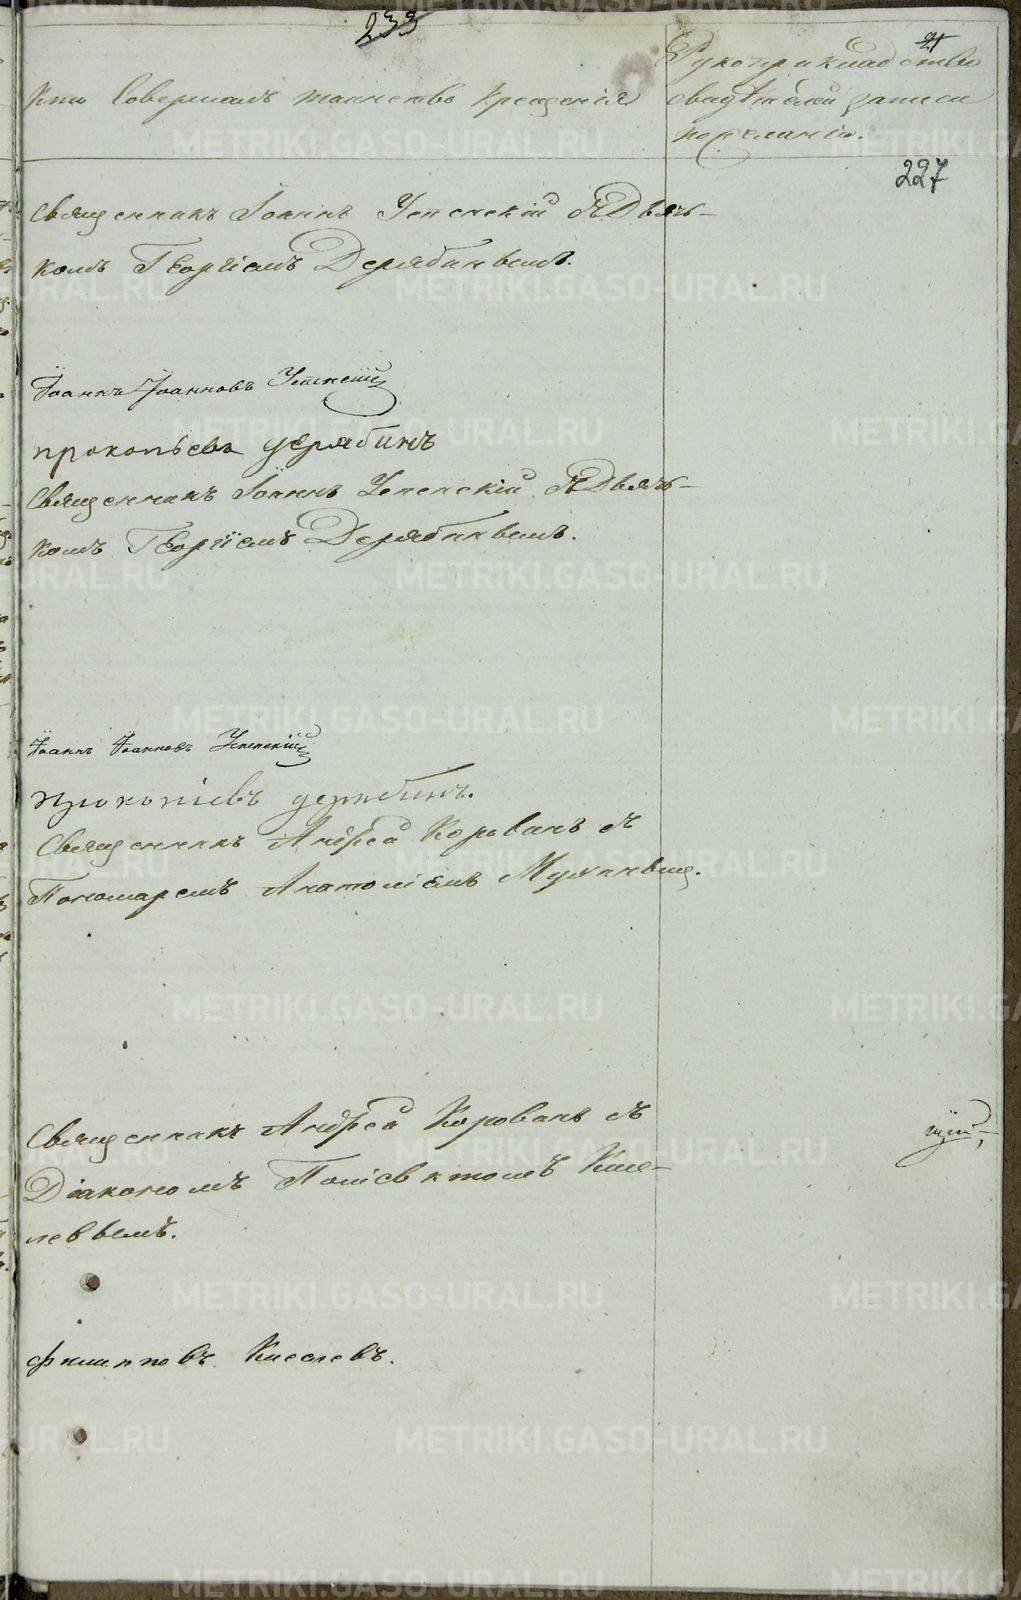 233
21
Кто Совершалъ таинство крещенія
Рукоприкладство
свидѣтелей записи
по желанію.
227
Священникъ Іоаннъ Успенскій съ Дьяч-
комъ Георгіемъ Дерябинымъ.
Іоаннъ Іоанновъ Успенскій
прокопьевъ дерябинъ
Священникъ Іоаннъ Успенскій съ Дьяч-
комъ Георгіемъ Дерябинымъ.
Іоаннъ Іоанновъ Успенскій
прокопіевъ дерябинъ.
Священникъ Андрей Коровинъ съ
Пономаремъ Анатоліемъ
Священникъ Андрей Коровинъ съ
Діакономъ Поліевктомъ Кисе-
левымъ.
Филипповъ Киселевъ.
METRIKI.GASO-URAL.RU